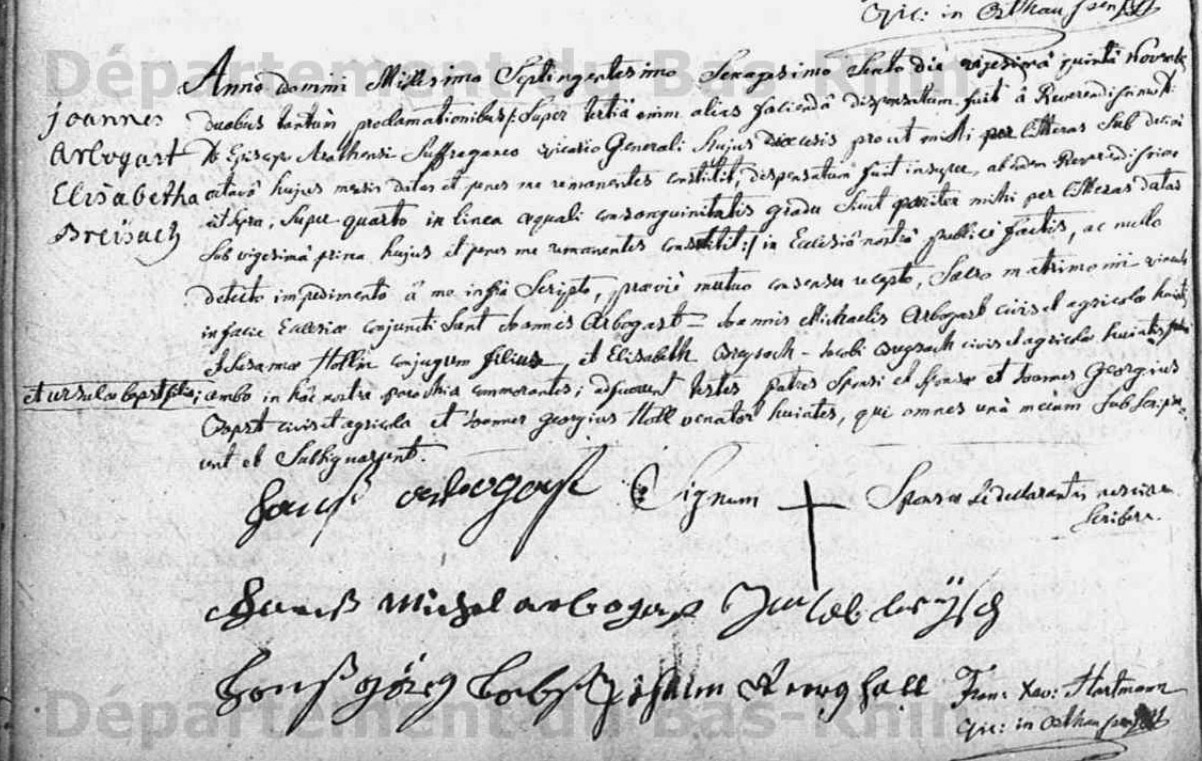 Vic: in Osthausen
Département du Bas-Rhin
Joannes
Arbogast
Elisabetha
Breisach
Anno Domini Millesimo Septingentesimo Sexagesimo Sexto die vigesimâ quintâ Novembr
duabus tantùm proclamationibus /: super tertiâ enim aliàs faciendâ dispensatum fuit â Reverendissimo
D Episcop Arathensi Suffraganeo vicario Generali hujus dioecesis prout mihi per litteras sub decimâ
octavâ hujus mensis datas et penes me remanentes constitit, dispensatum fuit insuper, ab eodem Reverendissimo
ut supra, super quarto in linea aequali consanguinitatis gradu sicut pariter mihi per litteras datas
sub vigesimâ primâ hujus et penes me remanentes constitit :/ in Ecclesiâ nostrâ publicè factis, ac nullo
detecto impedimento â me infrà scripto, praeviè mutuo consensu recepto, Sacro matrimonii vinculo
in facie Ecclesiae conjuncti sunt Joannes Arbogast – Joannis Michaelis Arbogast civis et agricolae huiatis
Hollin conjugum filius, et Elisabeth Breysach – Jacobi Breysach civis et agricolae huiatis
et ursulae bapst filia; ambo in hâc nostrâ parochia commorantes; adfuerunt testes patres sponsi et sponsae et Joannes Georgius
Bapst civis et agricola et Joannes Georgius Holl venator huiates, qui omnes unà mecum subscripse-
runt et subsignarunt.
Hanß arbogast Signum + Sponsae declarantis nescire
scribere.
Hanß Michel arbogast Jacob breÿsch
Hanß görg babst Johann Georg hall Fran: Xav: Hartmann
Vic: in Osthausen
Département du Bas-Rhin